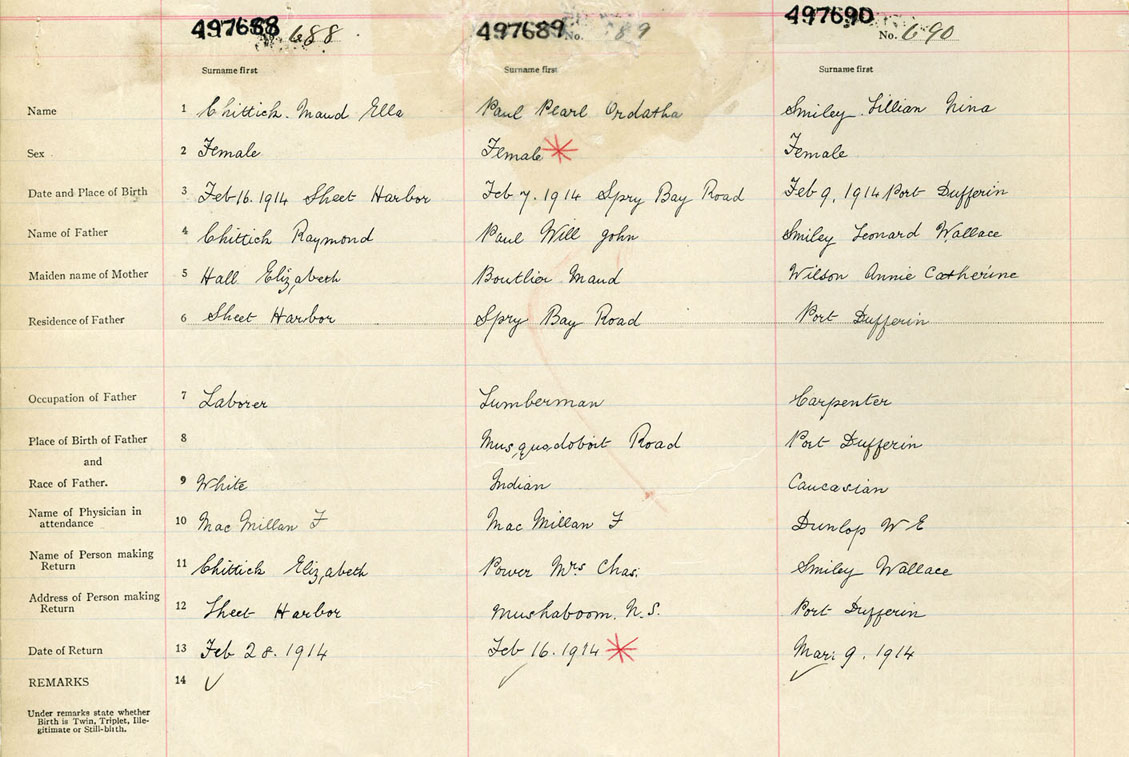 497688 No. 688 497689 No. 89 497690 No. 690
Surname first Surname first Surname first
Name 1 Chittick. Maud Ella Paul Pearl Ordatha Smiley. Lillian Nina
Sex 2 Female Female Female
Date and Place of Birth 3 Feb 16. 1914 Sheet Harbor Feb 7. 1914 Spry Bay Road Feb 9, 1914 Port Dufferin
Name of Father 4 Chittick Raymond Paul Will John Smiley Leonard Wallace
Maiden name of Mother 5 Hall Elizabeth Boutlier Maud Wilson Annie Catherine
Residence of Father 6 Sheet Harbor Spry Bay Road Port Dufferin
Occupation of Father 7 Laborer Lumberman Carpenter
Place of Birth of Father 8 Musquodoboit Road Port Dufferin
and
Race of Father. 9 White Indian Caucasian
Name of Physician in
attendance 10 Mac Millan F Mac Millan F Dunlop W E
Name of Person making
Return 11 Chittick Elizabeth Power Mrs Chas. Smiley Wallace
Address of Person making
Return 12 Sheet Harbor Mushaboom. N.S. Port Dufferin
Date of Return 13 Feb 28. 1914 Feb 16. 1914 Mar: 9. 1914
REMARKS 14
Under remarks state whether
Birth is Twin, Triplet, Ille-
gitimate or Still-birth.